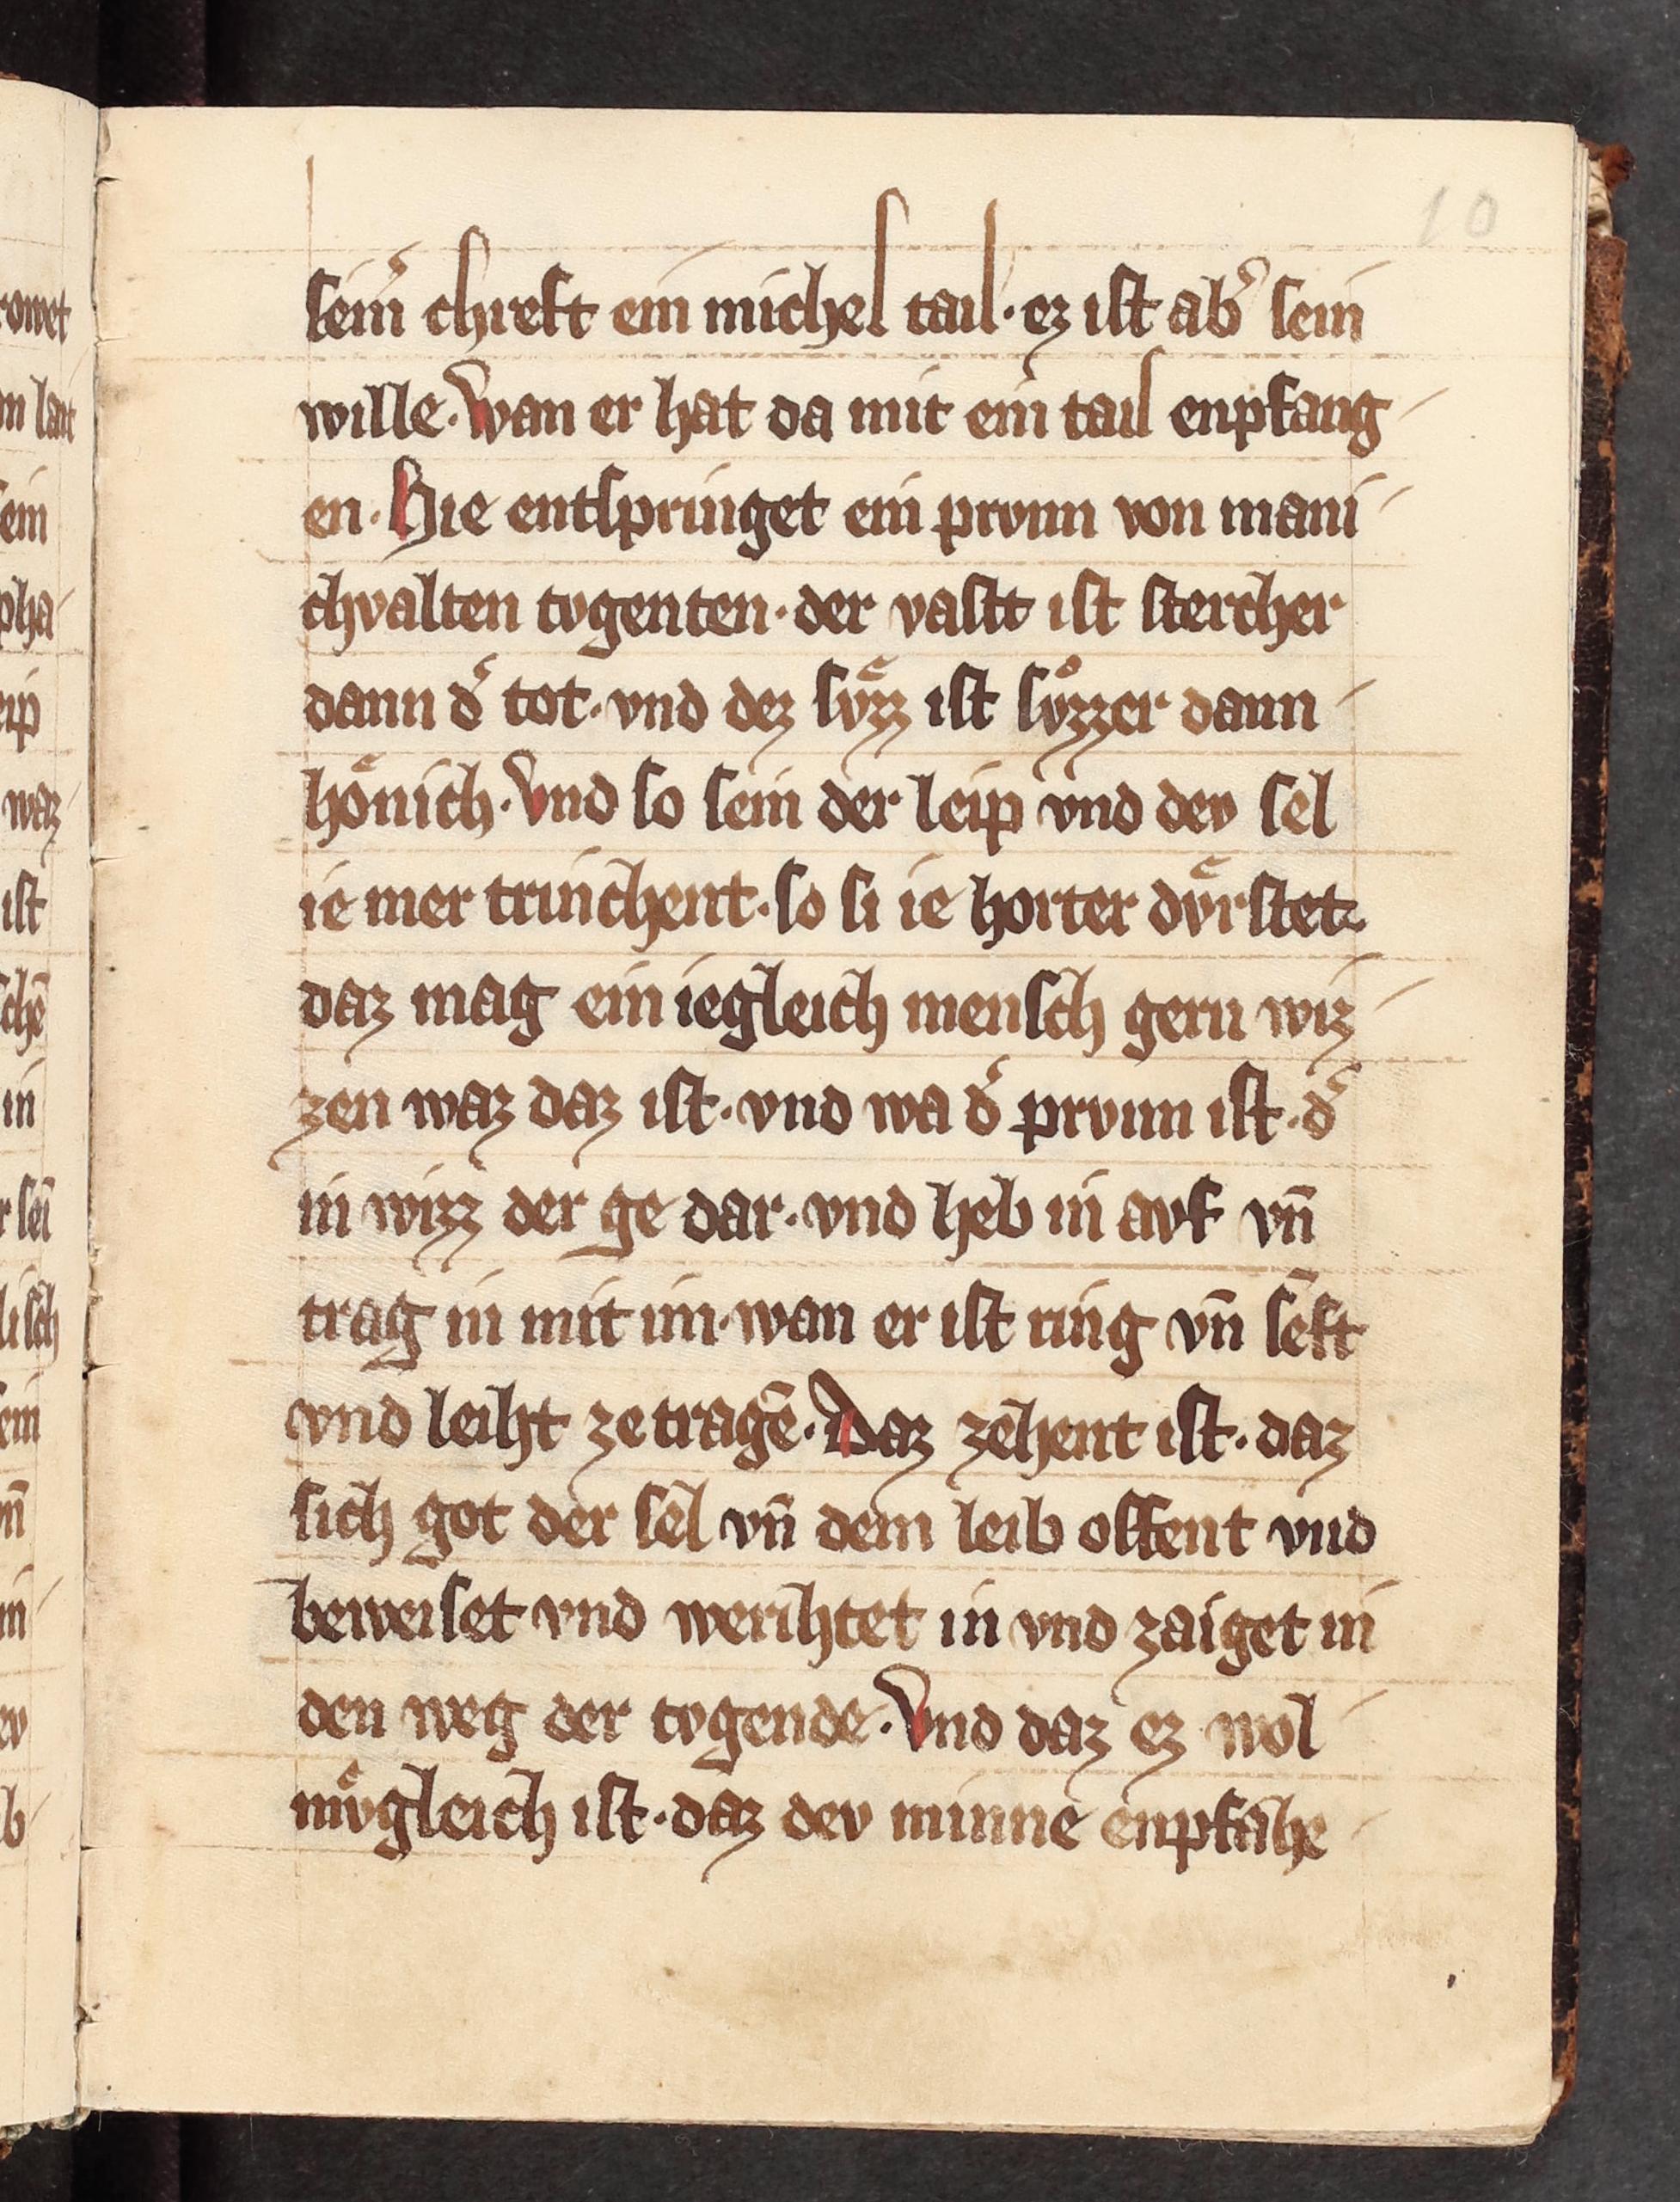 10
seim̄ chreft ein michel tail · ez ist ab͛ sein
wille · Wan er hat da mit ein tail enpfang
en · Hie entspringet ein prvnn von mani
chvalten tvgenten · der vastt ist stercher
dann d͛ tot · vnd dez svͤzz ist svͦzzer dann
hoͤnich · Vnd so sein der leip vnd dev sel
ie mer trinchent · so si ie horter dvͤrstet.
daz mag ein iegleich mensch gern wiz
zen waz daz ist · vnd wa d͛ prvnn ist · d͛
in wizz der ge dar · vnd heb in avf vn̄
trag in mit im · wan er ist ring vn̄ seft
vnd leiht ze tragē · Daz zehent ist · daz
sich got der sel vn̄ dem leib offent vnd
beweiset vnd werihtet in vnd zaiget in
den weg der tvgende · Vnd daz ez wol
mvͤgleich ist · daz dev minne enpfahe